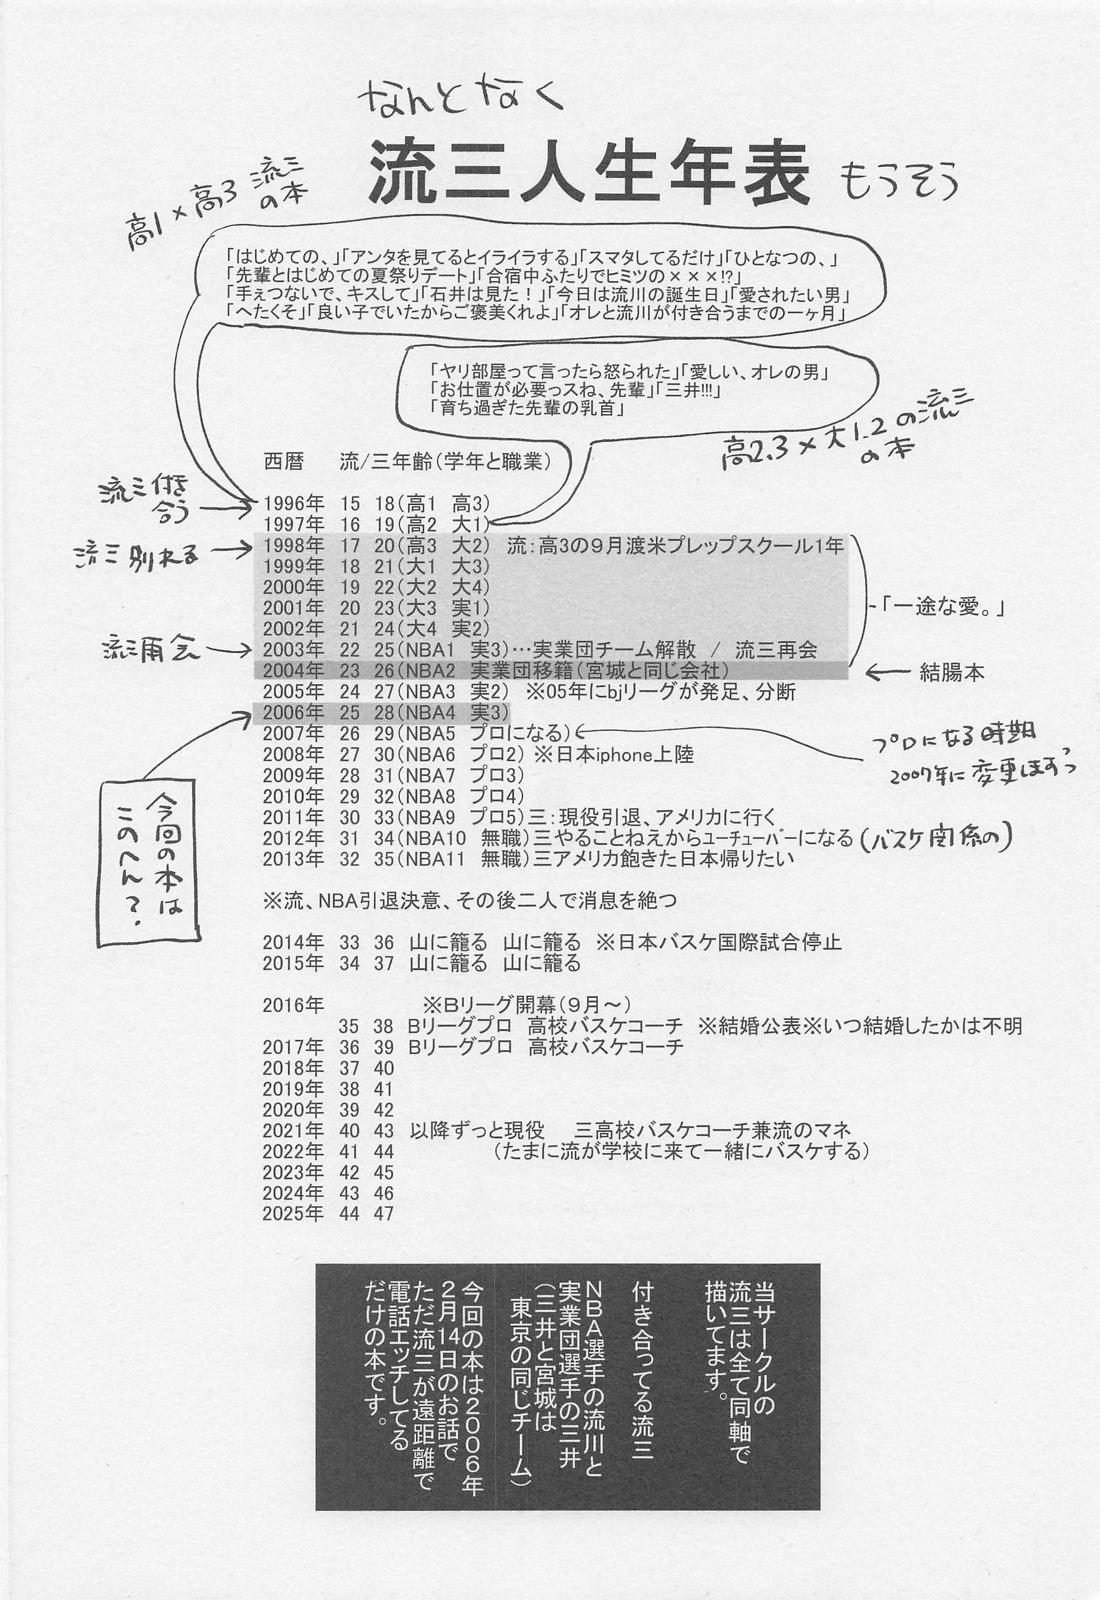 なんとなく
流三人生年表 もうそう
高1×高3 流三
の本
「はじめての、」「アンタを見てるとイライラする」「スマタしてるだけ」「ひとなつの、」
「先輩とはじめての夏祭りデート」「合宿中ふたりでヒミツの×××!?」
「手ぇつないで、キスして」「石井は見た！」「今日は流川の誕生日」「愛されたい男」
「へたくそ」「良い子でいたからご褒美くれよ」「オレと流川が付き合うまでの一ヶ月」
「ヤリ部屋って言ったら怒られた」「愛しい、オレの男」
「お仕置が必要っスね、先輩」「三井!!!」
「育ち過ぎた先輩の乳首」
高2.3×大1.2の流三
の本
西暦 流/三年齢（学年と職業）
流三付き
合う
1996年 15 18（高1 高3）
1997年 16 19（高2 大1）
流三別れる
1998年 17 20（高3 大2） 流：高3の9月渡米プレップスクール1年
1999年 18 21（大1 大3）
2000年 19 22（大2 大4）
2001年 20 23（大3 実1）
「一途な愛。」
2002年 21 24（大4 実2）
流三再会
2003年 22 25（NBA1 実3）…実業団チーム解散 / 流三再会
2004年 23 26（NBA2 実業団移籍（宮城と同じ会社）
結腸本
2005年 24 27（NBA3 実2） ※05年にbjリーグが発足、分断
2006年 25 28（NBA4 実3）
2007年 26 29（NBA5 プロになる）
プロになる時期
2007年に変更しますっ
2008年 27 30（NBA6 プロ2） ※日本iphone上陸
2009年 28 31（NBA7 プロ3）
2010年 29 32（NBA8 プロ4）
2011年 30 33（NBA9 プロ5）三：現役引退、アメリカに行く
2012年 31 34（NBA10 無職）三やることねえからﾕｰﾁｭｰﾊﾞｰになる（バスケ関係の）
2013年 32 35（NBA11 無職）三アメリカ飽きた日本帰りたい
今回の本は
このへん？
※流、NBA引退決意、その後二人で消息を絶つ
2014年 33 36 山に籠る 山に籠る ※日本バスケ国際試合停止
2015年 34 37 山に籠る 山に籠る
2016年 ※Bリーグ開幕（9月～）
35 38 Bリーグプロ 高校バスケコーチ ※結婚公表※いつ結婚したかは不明
2017年 36 39 Bリーグプロ 高校バスケコーチ
2018年 37 40
2019年 38 41
2020年 39 42
2021年 40 43 以降ずっと現役 三高校バスケコーチ兼流のマネ
2022年 41 44 （たまに流が学校に来て一緒にバスケする）
2023年 42 45
2024年 43 46
2025年 44 47
当サークルの
流三は全て同軸で
描いてます。
付き合ってる流三
NBA選手の流川と
実業団選手の三井
（三井と宮城は
東京の同じチーム）
今回の本は2006年
2月14日のお話で
ただ流三が遠距離で
電話エッチしてる
だけの本です。